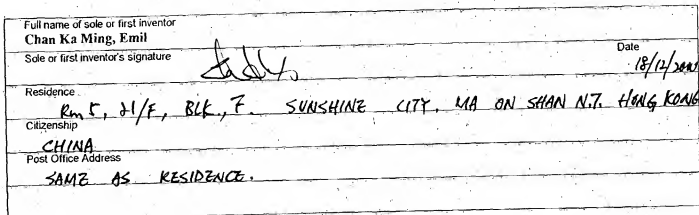 Full name of sole or first inventor
Chan Ka Ming, Emil
Sole or first inventor's signature
Date
18/12/
Residence
Rm 5, 21/F, BLK, 7. SUNSHINE CITY. MA ON SHAN N.T. HONG KONG
Citizenship
CHINA
Post Office Address
SAME AS RESIDENCE.